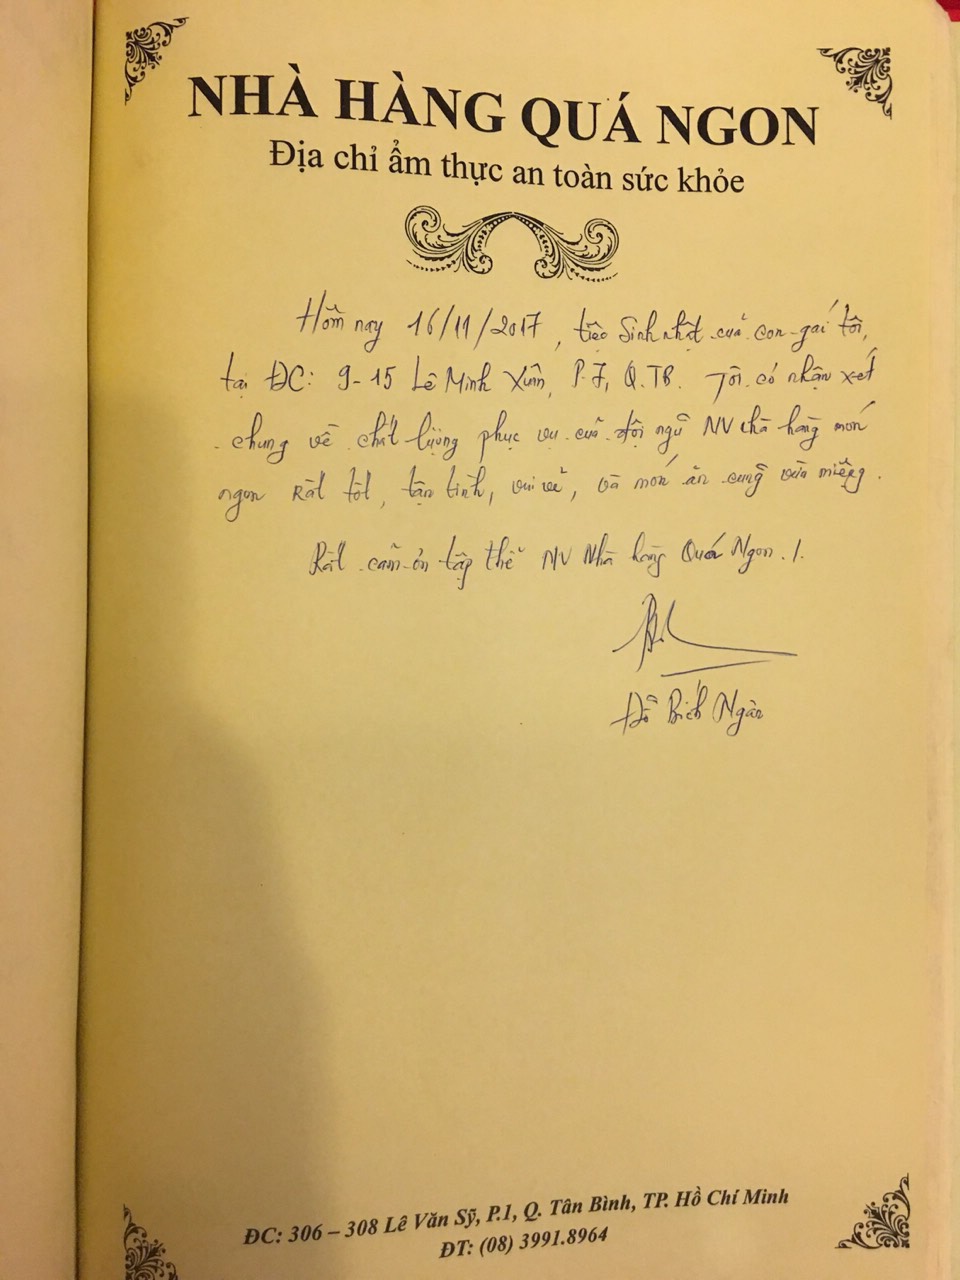 NHÀ HÀNG QUÁ NGON
Địa chỉ ẩm thực an toàn sức khỏe
Hôm nay 16/11/2017, tiệc Sinh nhật của con gái tôi,
tại ĐC: 9-15 Lê Minh Xuân, P.7, Q.TB. Tôi có nhận xét
chung về chất lượng phục vụ của đội ngũ NV nhà hàng món
ngon Rất tốt, tận tình, vui vẻ, và món ăn cũng vừa miệng.
Rất cảm ơn tập thể NV Nhà hàng Quá Ngon./.
Đỗ Bích Ngân
ĐC: 306 – 308 Lê Văn Sỹ, P.1, Q. Tân Bình, TP. Hồ Chí Minh
ĐT: (08) 3991.8964